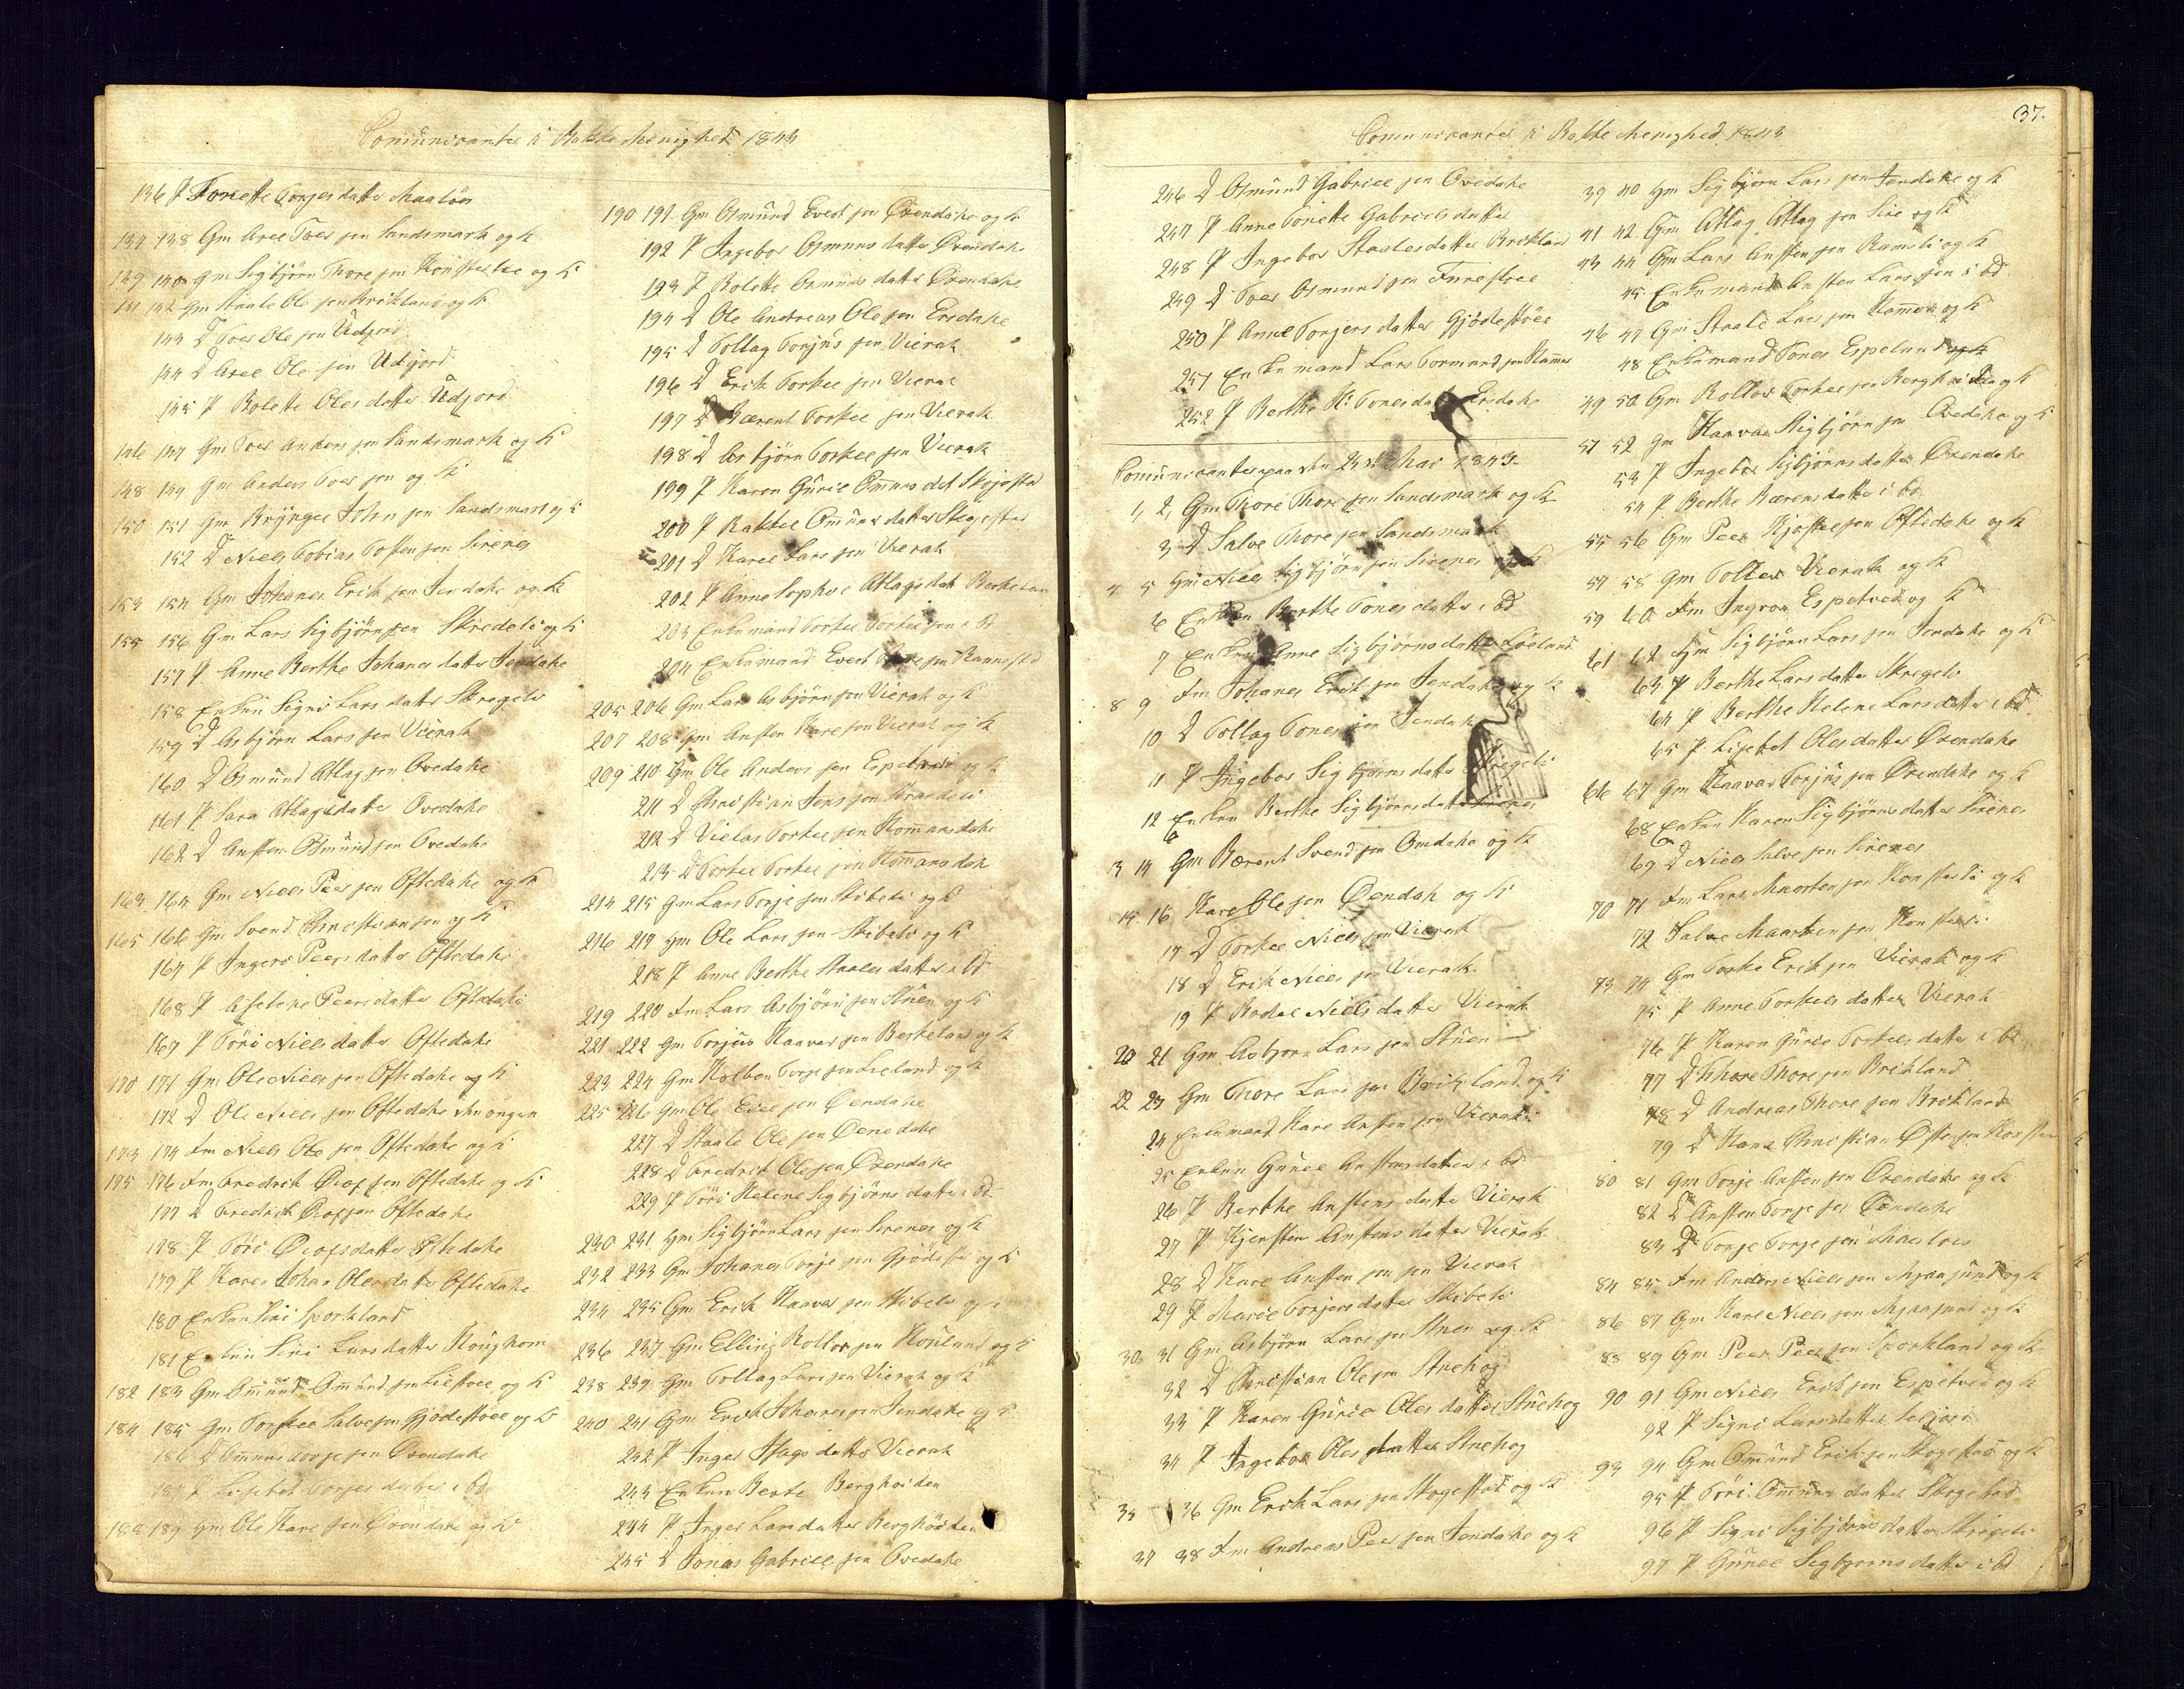 Comunicanter i Bakke Menighed 1843
136 P Tonette Torjersdatter Maaløe
137 138 Gm Axel Toer sen Sandsmark og K
139 140 Gm Sigbjørn Thore sen og K
141 142 Gm Staale Ole sen Birkland og K
143 D Toer Ole sen Udjord
144 D Axel Ole sen Udjord
145 P Bolette Olesdatter Udjord
146 147 Gm Toer Anders sen Sandsmark og K
148 149 Gm Anders Toer sen og K
150 151 Gm Brynjel John sen Sandsmark og K
152 D Niels Tobias Tosten sen Sirenes
153 154 Gm Johanes Erik sen Jendahe og K
155 156 Gm Lars Sigbjørn sen Skredeli og K
157 P Anne Berthe Johanesdatter Jendahe
158 Enken Signi Larsdatter Skregeli
159 D Asbjørn Lars sen Vierak
160 D Osmund Atlag sen Ovedahe
161 P Sara Atlagsdatter Ovedahe
162 D Ansten Osmund sen Ovedahe
163 164 Gm Niels Peer sen Oftedahe og K
165 166 Gm Svend Christian sen og K
167 P Ingeri Peersdatter Oftedahe
168 P Peersdatter Oftedahe
169 P Tøri Nielsdatter Oftedahe
170 171 Gm Ole Niels sen Oftedahe og K
172 D Ole Niels sen Oftedahe den öngere
173 174 Fm Niels Ole sen Oftedahe og K
175 176 Fm Fredrik Oluf sen Oftedahe og K
177 D Fredrik Oluf sen Oftedahe
178 P Tøri Olufsdatter Oftedahe
179 P Karen Johan Olesdatter Oftedahe
180 Enken Siri Sporkland
181 Enken Siri Larsdatter Koughom
182 183 Gm Omund Omund sen og K
184 185 Gm Torkel Salve sen Gjødestøel og K
186 D Omund Torje sen Øvendahe
187 P Lisebet Torjesdatter i bd
188 189 Gm Ole Kare sen Øvendahe og K
190 191 Gm Osmund Evert sen Øvendahe og K
192 P Ingebor Osmundsdatter Øvendahe
193 P Bolette Osmundsdatter Øvendahe
194 D Ole Andreas Ole sen Ersdahe
195 D Tollag Torjus sen Vierak
196 D Erik Torkel sen Vierak
197 D Bærent Torkel sen Vierak
198 D Asbjørn Torkel sen Vierak
199 P Karen Gurie Omundsdat Skogestad
200 P Rakkel Omundsdatter Skogestad
201 D Karel Lars sen Vierak
202 P Anne Sophie Atlagsdat Berkeland
203 Enkemand Torkel Torkel sen i bd
204 Enkemand Evert sen
205 206 Gm Lars Asbjørn sen Vierak og K
207 208 Gm Ansten Kare sen Vierak og K
209 210 Gm Ole Anders sen Espetvedt og K
211 D Christian Jens sen Strandeli
212 D Vielas Torkel sen Homansdahe
213 D Torkel Torkel sen Homansdah
214 215 Gm Lars Torje sen Skibeli og K
216 217 Gm Ole Lars sen Skibeli og K
218 P Anne Berthe Staalesdatter i bd
219 220 Fm Lars Asbjörn sen Stuen og K
221 222 Gm Torjus Haavar sen Berkeland og K
223 224 Gm Kolben Torje sen Lieland og K
225 226 Gm Ole Eiel sen Øvendahe
227 D Staale Ole sen Øvendahe
228 D Fredrik Ole sen Øvendahe
229 P Töri Helene Sigbjörnsdatter i bd
230 231 Gm Sigbjørn Lars sen Sirenes og K
232 233 Gm Johanes Torje sen Gjødestøl og K
234 235 Gm Erik Haavar sen Skibeli og K
236 237 Gm Elling Rollov sen Houlund og K
238 239 Gm Tollag Lars sen Vierak og K
240 241 Gm Erik Johanes sen Jendahe og K
242 P Inger datter Vierak
243 Enken Berte Berghøiden
244 P Inger Larsdatter Berghøiden
245 D Jonas Gabriel sen Ovedahe
37.
Comunicanter i Bakke Menighed 1843
246 D Osmund Gabriel sen Ovedahe
247 P Anne Tonette Gabrielsdatter
248 P Ingebor Staalesdatter Birkland
249 D Toer Osmund sen Furestøel
250 P Anne Torjersdatter Gjødestøel
251 Enkemand Lars Tormund sen
252 P Berthe K: Ersdahe
Comunicanter paa den 25de Mai 1843
1, 2, Gm Thore Thore sen Sandsmark og K
3 D Salve Thore sen Sandsmark
4 5 Gm Niels Sigbjörn sen Sirenes og K
6 Enken Berthe Tonesdatter i bd
7 Enken Anne Sigbjørnsdatter Löeland
8 9 Fm Johanes Erik sen Jendahe og K
10 D Tollag Tones sen Jendahe
11 P Ingebor Sigbjørnsdatter Skregeli
12 Enken Berthe Sigbjörnsdatter Sirenes
13 14 Gm Bærent Svend sen Omdahe og K
15. 16 Kare Ole sen Øvendah og K
17 D Torkel Niels sen Vierak
18 D Erik Niels sen Vierak
19 P Bodel Nielsdatter Vierak
20 21 Gm Asbjorn Lars sen Stuen
22 23 Gm Thore Lars sen Birkland og K
24 Enkemand Kare Ansten sen Vierak
25 Enken Gunel Anstensdatter i bd
26 P Berthe Anstensdatter Vierak
27 P Kjersten Anstensdatter Vierak
28 D Kare Ansten sen Vierak
29 P Marie Torjersdatter Skibeli
30. 31 Gm Asbjörn Lars sen Stuen og K
32 D Christian Ole sen Strehog
33 P Karen Gurie Olesdatter Strehog
34 P Ingebor Olesdatter Strehog
35 36 Gm Erik Lars sen Skogestad og K
37 38 Fm Andreas Peer sen Jendahe og K
39 40 Gm Sigbjørn Lars sen Jendahe og K
41 42 Gm Atlag Atlag sen Sire og K
43 44 Gm Lars Ansten sen Ramsli og K
45 Enkemand Ansten Lars sen i bd
46 47 Gm Staale Lars sen og K
48 Enkemand Tones Espelund
49 50 Gm Rollov Torkel sen Berghøiden og K
51 52 Gm Haavar Sigbjörn sen Ovedahe og K
53 P Ingebor Sigbjörnsdatter Øvendahe
54 P Berthe Bærensdatter i bd
55 56 Gm Peer sen Oftedahe og K
57 58 Gm Tollev Vierak og K
59 60 Fm Ingvar Espetved og K
61 62 Gm Sigbjörn Lars sen Jendahe og K
63 P Berthe Larsdatter Skregeli
64 P Berthe Helene Larsdatter i bd
65 P Lisebet Olesdatter Øvendahe
66 67 Gm Haavar Torjus sen Øvendahe og K
68 Enken Karen Sigbjörnsdatter Sirenes
69 D Niels Salve sen Sirenes
70 71 Fm Lars Maarten sen og K
72 Salve Maarten sen
73 74 Gm Torkel Erik sen Vierak og K
75 P Anne Torkelsdatter Vierak
76 P Karen Gurie Torkelsdatter i bd
77 D Thore Thore sen Birkland
78 D Andreas Thore sen Birkland
79 D Hans Christian
80 81 Gm Torje Ansten sen Øvendahe og K
82 D Ansten Torje sen Øvendahe
83 D Torje Torje sen
84 85 Fm Anders Niels sen Mjaasund og K
86 87 Gm Kare Niels sen Mjaasund og K
88 89 Gm Peer Peer sen Sporkland og K
90 91 Gm Niels Erik sen Espetved og K
92 P Signi Larsdatter
93 94 Gm Omund Erik sen Skogestad og K
95 P Töri Omundsdatter Skogestad
96 P Signi Sigbjörnsdatter Skregeli
97 P Gunel Sigbjornsdatter i bd